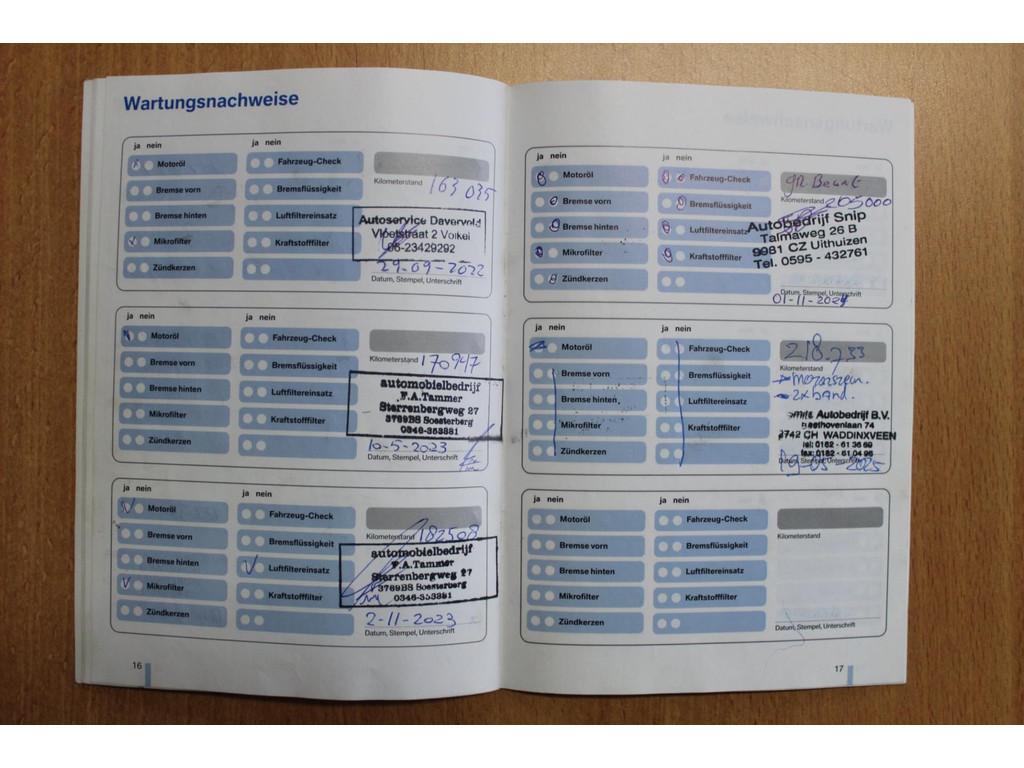 Wartungsnachweise
ja nein
Motoröl
Bremse vorn
Bremse hinten
Mikrofilter
Zündkerzen
Fahrzeug-Check
Bremsflüssigkeit
Luftfiltereinsatz
Kraftstofffilter
Kilometerstand 163 035
Autoservice
Vloetstraat 2 Volkel
06-23429292
29-09-2022
Datum, Stempel, Unterschrift
ja nein
ja nein
Motoröl
Bremse vorn
Bremse hinten
Mikrofilter
Zündkerzen
Fahrzeug-Check
Bremsflüssigkeit
Luftfiltereinsatz
Kraftstofffilter
Kilometerstand 170947
automobielbedrijf
F.A.Tammer
Sterrenbergweg 27
3769BS Soesterberg
0346-353881
10-5-2023
Datum, Stempel, Unterschrift
ja nein
ja nein
Motoröl
Bremse vorn
Bremse hinten
Mikrofilter
Zündkerzen
Fahrzeug-Check
Bremsflüssigkeit
Luftfiltereinsatz
Kraftstofffilter
Kilometerstand 182508
automobielbedrijf
F.A.Tammer
Sterrenbergweg 27
3769BS Soesterberg
0346-353881
2-11-2023
Datum, Stempel, Unterschrift
16
ja nein
ja nein
Motoröl
Bremse vorn
Bremse hinten
Mikrofilter
Zündkerzen
Fahrzeug-Check
Bremsflüssigkeit
Luftfiltereinsatz
Kraftstofffilter
gr. Beurt
Kilometerstand 205000
Autobedrijf Snip
Talmaweg 26 B
9981 CZ Uithuizen
Tel. 0595 - 432761
Datum, Stempel, Unterschrift
01-11-2024
ja nein
ja nein
Motoröl
Bremse vorn
Bremse hinten
Mikrofilter
Zündkerzen
Fahrzeug-Check
Bremsflüssigkeit
Luftfiltereinsatz
Kraftstofffilter
218.733
Kilometerstand
2x band.
Autobedrijf B.V.
74
2742 CH WADDINXVEEN
tel: 0182 - 61 36 69
fax: 0182 - 61 04 96
Datum, Stempel, Unterschrift
19-05-2025
ja nein
ja nein
Motoröl
Bremse vorn
Bremse hinten
Mikrofilter
Zündkerzen
Fahrzeug-Check
Bremsflüssigkeit
Luftfiltereinsatz
Kraftstofffilter
Kilometerstand
Datum, Stempel, Unterschrift
17